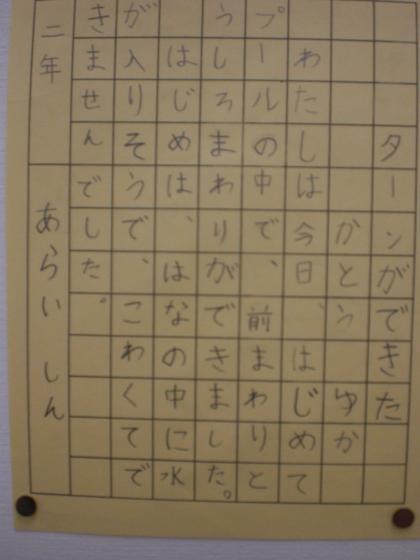 ターンができた
かとう ゆか
わたしは今日、はじめて
プールの中で、前まわりと
うしろまわりができました。
はじめは、はなの中に水
が入りそうで、こわくてで
きませんでした。
二年 あらい しん